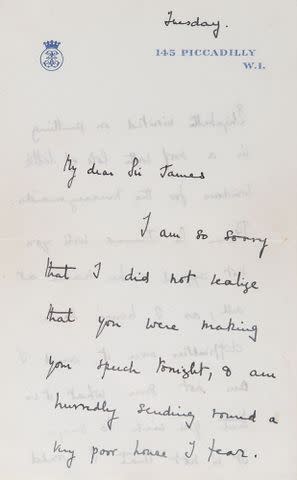 Tuesday.
145 PICCADILLY
W.1.
My dear Sir James
I am so sorry
that I did not realize
that you were making
your speech tonight, & am
hurriedly sending round a
very poor house I fear.